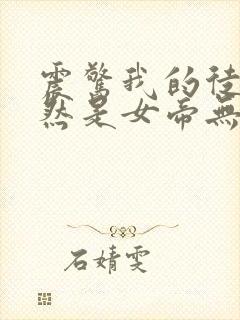 震驚我的徒
然是女帝無
石婧雯